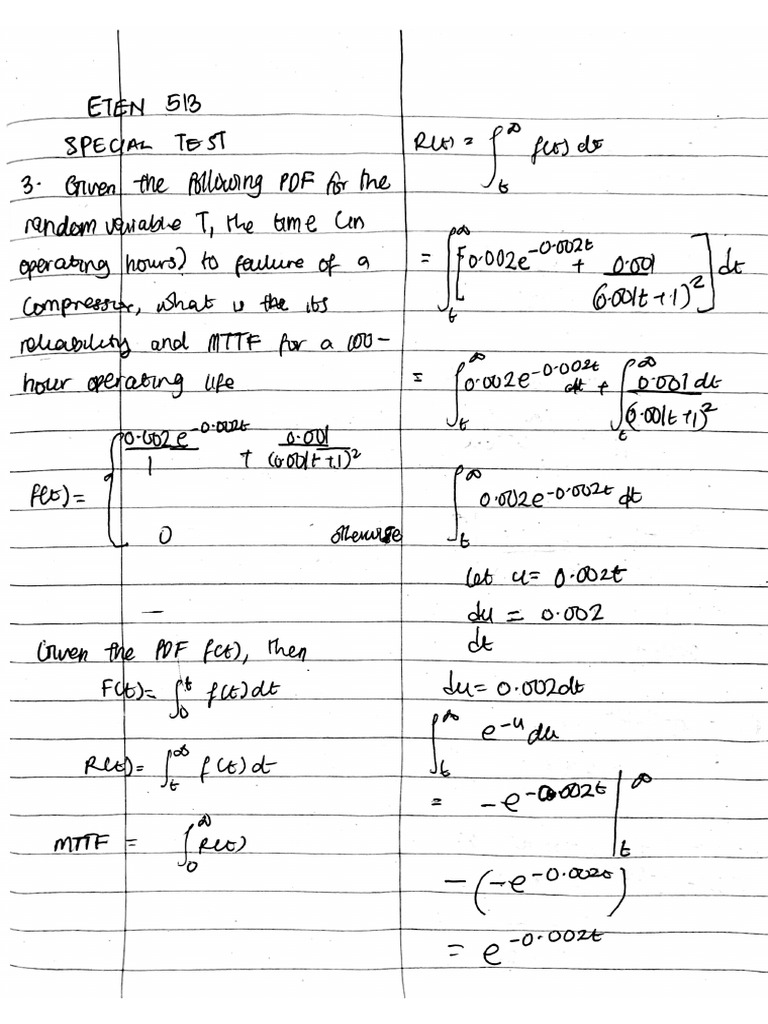 ETEN 513
SPECIAL TEST
3. Given the following PDF for the
random variable T, the time (in
operating hours) to failure of a
compressor, what is the its
reliability and MTTF for a 100-
hour operating life
f(t) = { 0.002e^-0.002t / 1 + 0.001 / (0.001t + 1)^2
0 otherwise
—
Given the PDF f(t), then
F(t) = ∫_0^t f(t) dt
R(t) = ∫_t^∞ f(t) dt
MTTF = ∫_0^∞ R(t)
R(t) = ∫_t^∞ f(t) dt
= ∫_t^∞ [0.002e^-0.002t + 0.001 / (0.001t + 1)^2] dt
= ∫_t^∞ 0.002e^-0.002t dt + ∫_t^∞ 0.001 dt / (0.001t + 1)^2
∫_t^∞ 0.002e^-0.002t dt
let u = 0.002t
du / dt = 0.002
du = 0.002dt
∫_t^∞ e^-u du
= -e^-0.002t |_t^∞
-(-e^-0.002t)
= e^-0.002t